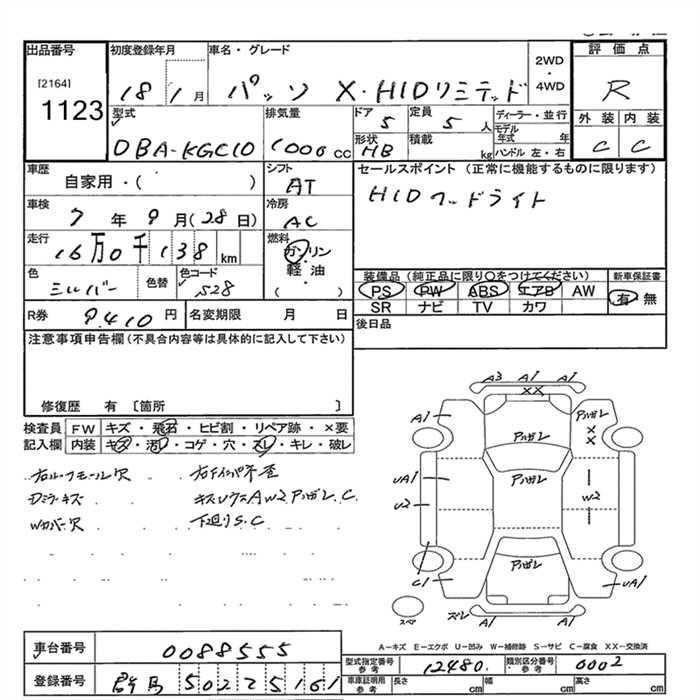 出品番号
[2164]
1123
初度登録年月
18 1月
車名・グレード
パッソ X・HIDリミテッド
2WD
・
4WD
評価点
R
外装 内装
C C
型式
DBA-KGC10
排気量
1000cc
ドア
5
定員
5人
形状
HB
積載
kg
ディーラー・並行
モデル年式 年
ハンドル 左・右
車歴
自家用・( )
シフト
AT
車検
7年9月(28日)
冷房
AC
走行
16万0千138km
燃料
ガソリン
軽油
( )
色
シルバー
色替
色コード
S28
R券
9,410円
名変期限 月 日
セールスポイント(正常に機能するものに限ります)
HIDヘッドライト
装備品(純正品に限り○をつけてください)
PS PW ABS エアB AW
SR ナビ TV カワ
新車保証書
有 無
後日品
注意事項申告欄(不具合内容等は具体的に記入して下さい)
修復歴 有〔箇所 〕
検査員 FW キズ・飛石・ヒビ割・リペア跡・×要
記入欄 内装 キズ・汚れ・コゲ・穴・スレ・キレ・破レ
右ルーフモール欠
Dミラーキズ
Wカバー欠
キズUウスAW2アハガレ、C、
下廻りS、C
A3 A1 A1
XX
A1
アハガレ
X
X
アハガレ
アハガレ
UA1
U2
W2
C1
アハガレ
UA1
スペア
スレ
A1 A1
A-キズ E-エクボ U-凹み W-補修跡 S-サビ C-腐食 XX-交換済
車台番号 0088555
登録番号 群馬502 25161
型式指定番号
参考
12480
類別区分番号
参考
0002
車庫証明用
参考
長さ cm
幅 cm
高さ cm